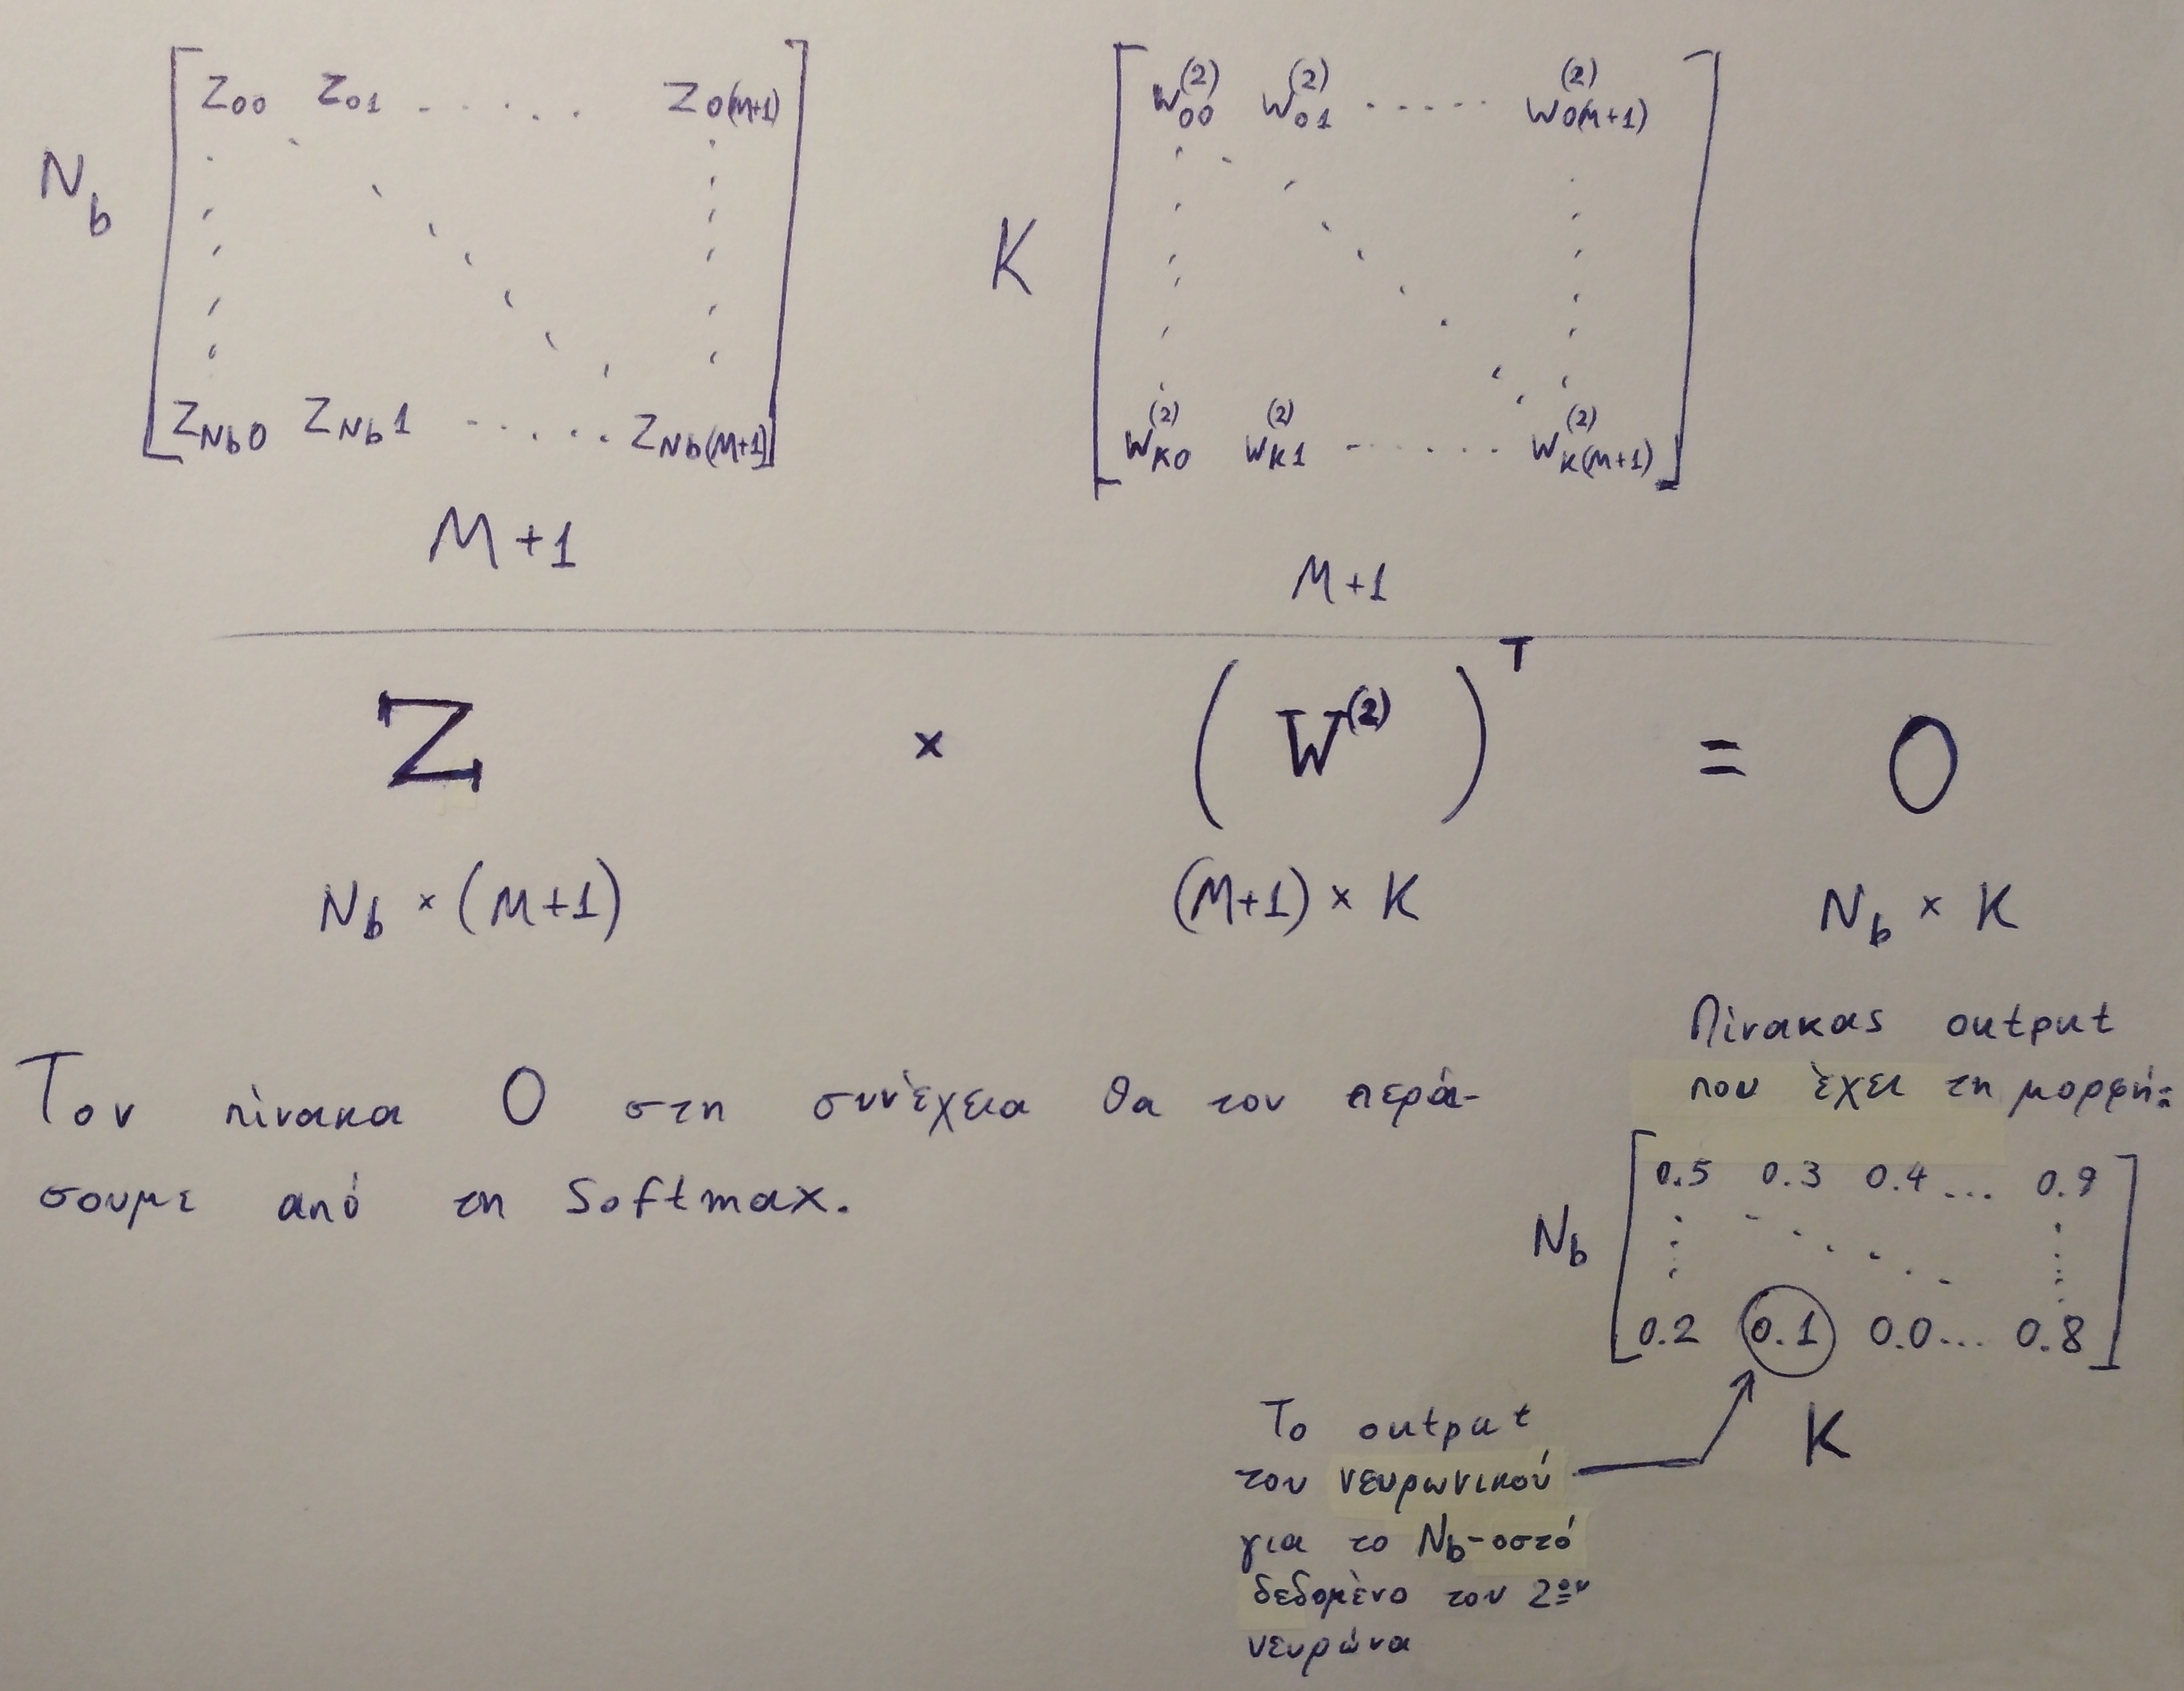 Z00 Z01 . . . . . Z0(M+1)
Nb
ZNb0 ZNb1 . . . . . . ZNb(M+1)
M+1
w00^(2) w01^(2) . . . . . w0(M+1)^(2)
K
wK0^(2) wK1^(2) . . . . . . wK(M+1)^(2)
M+1
Z × (W^(2))^T = O
Nb × (M+1) (M+1) × K Nb × K
Τον πίνακα O στη συνέχεια θα τον περά-
σουμε από τη Softmax.
Πίνακας output
που έχει τη μορφή:
0.5 0.3 0.4 ... 0.9
Nb
0.2 0.1 0.0 ... 0.8
K
Το output
του νευρωνικού
για το Nb-οστό
δεδομένο του 2ου
νευρώνα